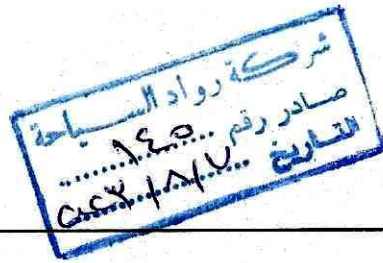 شركة رواد السياحة
صادر رقم ١٤٥
التاريخ ٢٠٢٣/٨/٧